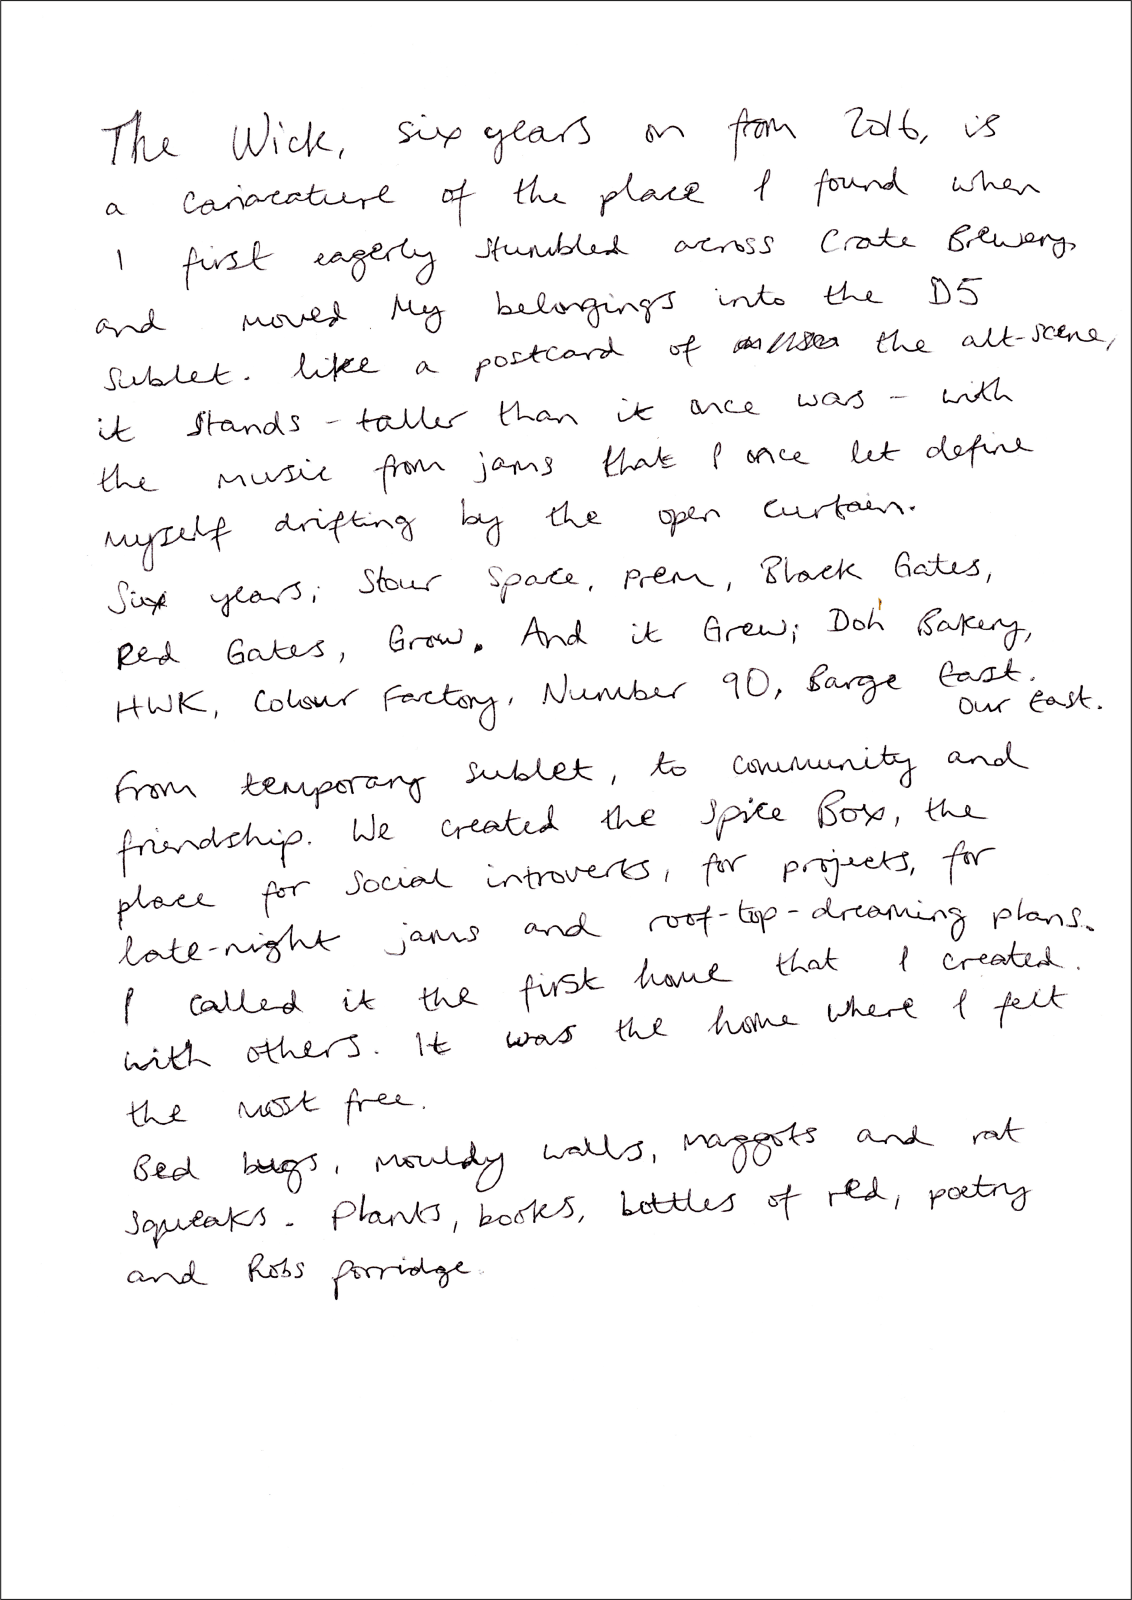 The Wick, six years on from 2016, is
a cariacature of the place I found when
I first eagerly stumbled across Crate Brewery,
and moved My belongings into the D5
sublet. like a postcard of the alt-scene,
it stands - taller than it once was - with
the music from jams that I once let define
myself drifting by the open curtain.
Six years; Stour Space, Prem, Black Gates,
Red Gates, Grow. And it Grew; Doh Bakery,
HWK, Colour Factory, Number 90, Barge East.
Our East.
From temporary sublet, to community and
friendship. We created the Spice Box, the
place for social introverts, for projects, for
late-night jams and roof-top-dreaming plans.
I called it the first home that I created.
with others. It was the home where I felt
the most free.
Bed bugs, mouldy walls, maggots and rat
squeaks. Plants, books, bottles of red, poetry
and Robs porridge.